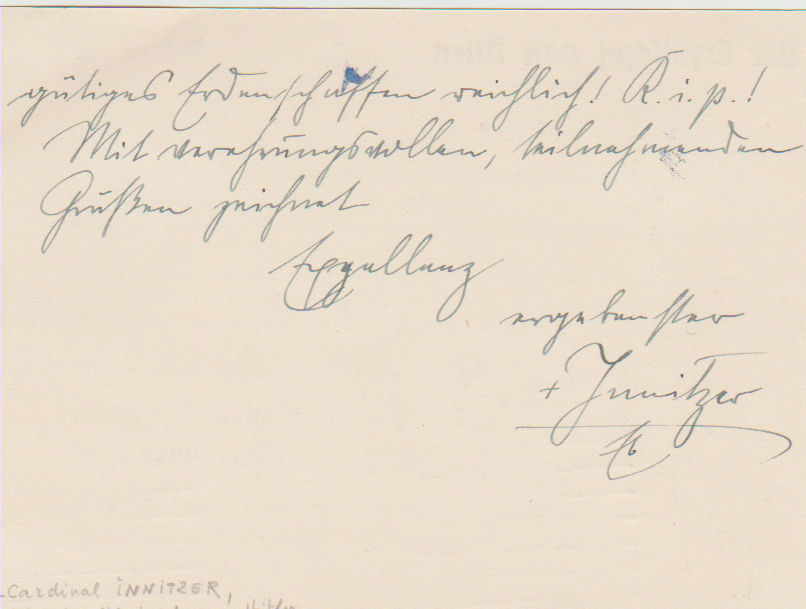 gütiges Erdenschaffen reichlich! R. i. p.!
Mit verehrungsvollen, teilnehmenden
Grüßen zeichnet
Exzellenz
ergebenster
+ Innitzer
Eb
Cardinal INNITZER,
Hitler